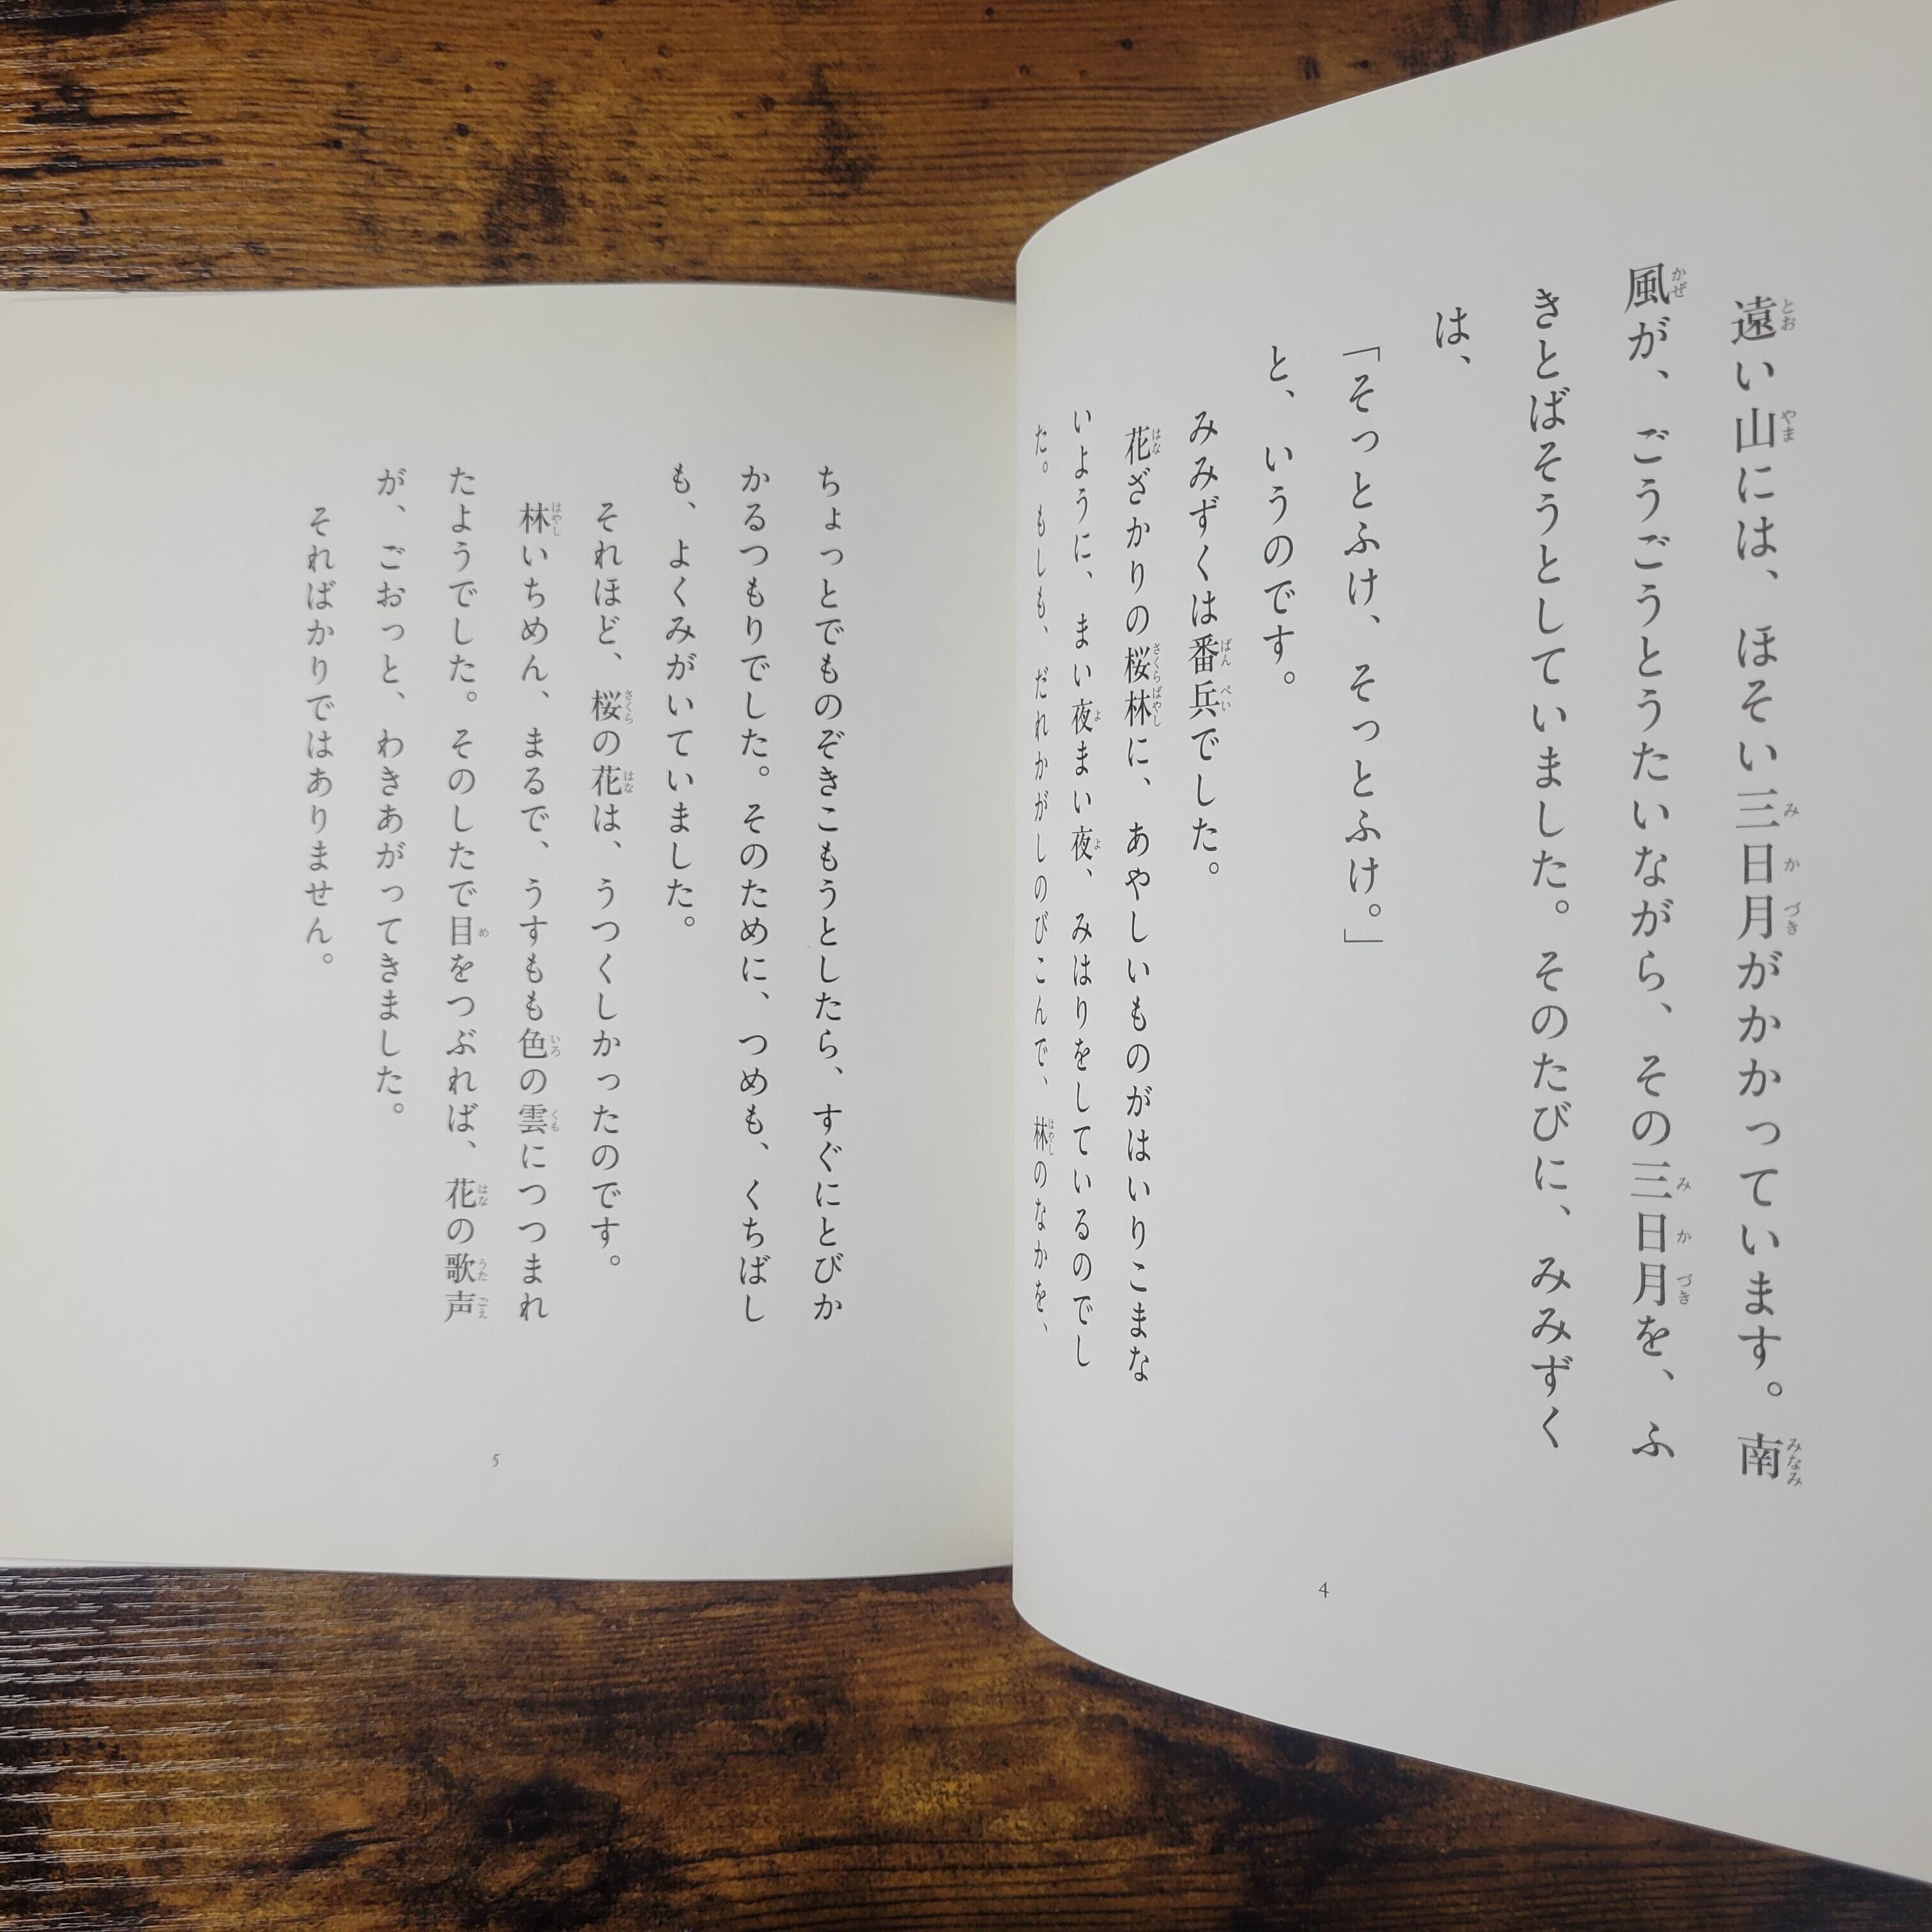 遠い山には、ほそい三日月がかかっています。南
風が、ごうごうとうたいながら、その三日月を、ふ
きとばそうとしていました。そのたびに、みみずく
は、
「そっとふけ、そっとふけ。」
と、いうのです。
みみずくは番兵でした。
花ざかりの桜林に、あやしいものがはいりこまな
いように、まい夜まい夜、みはりをしているのでし
た。もしも、だれかがしのびこんで、林のなかを、
4
ちょっとでものぞきこもうとしたら、すぐにとびか
かるつもりでした。そのために、つめも、くちばし
も、よくみがいていました。
それほど、桜の花は、うつくしかったのです。
林いちめん、まるで、うすもも色の雲につつまれ
たようでした。そのしたで目をつぶれば、花の歌声
が、ごおっと、わきあがってきました。
そればかりではありません。
5